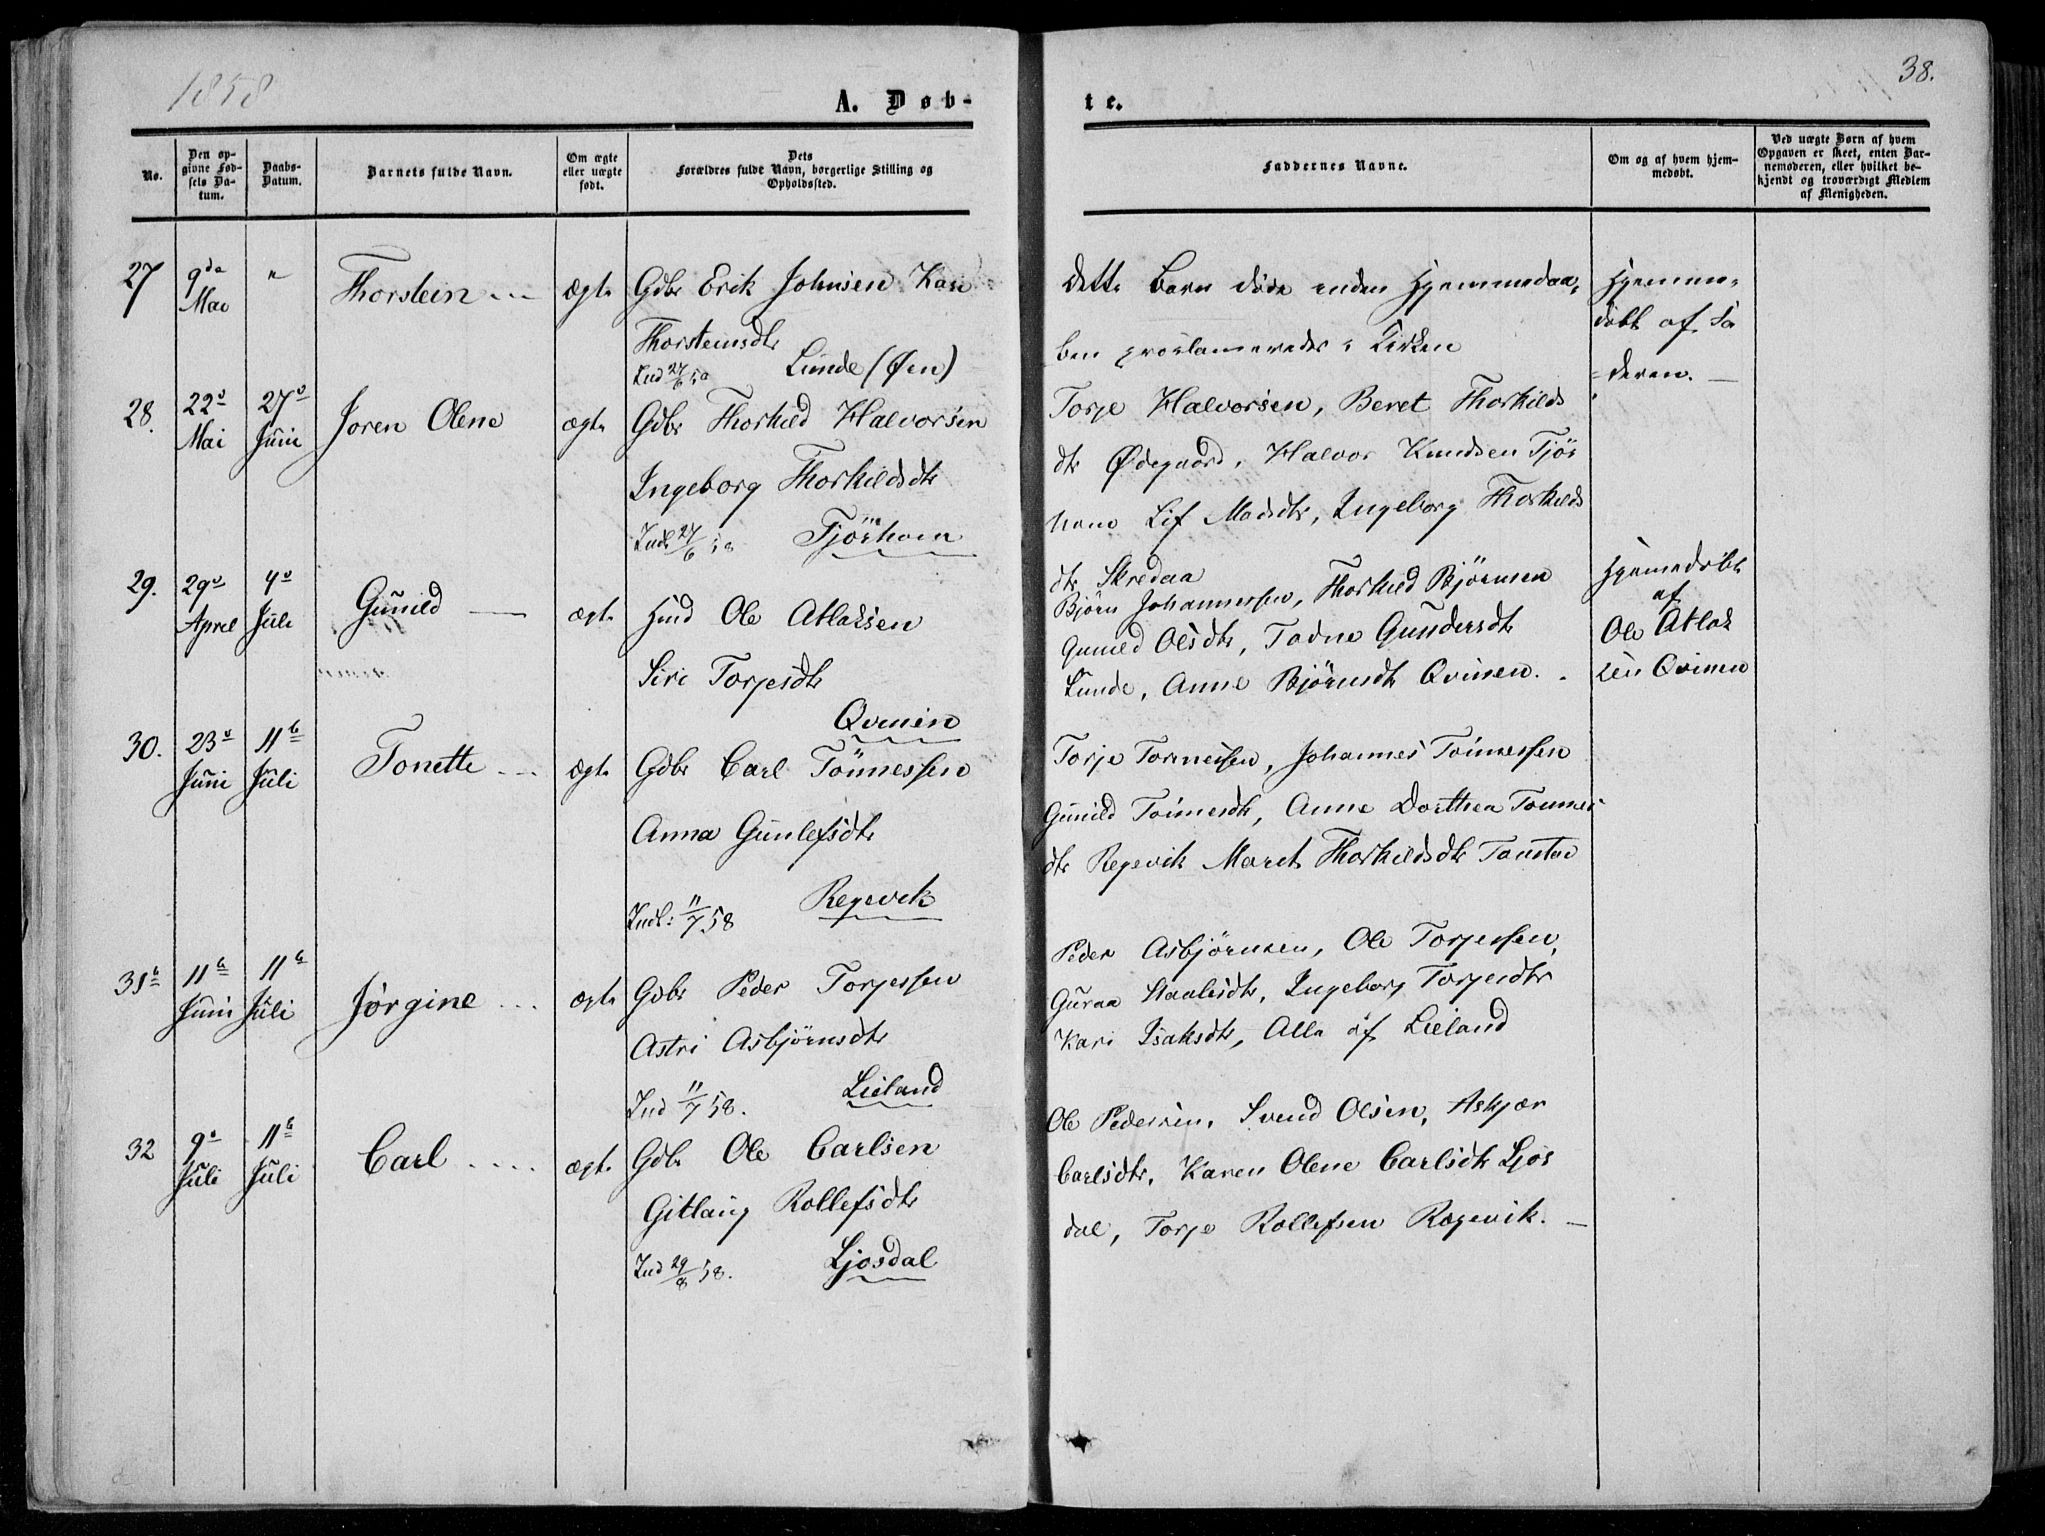 1858
38.
A. Døb-
te.
No.
Den op-
givne Fød-
sels Da-
tum.
Daabs-
Datum.
Barnets fulde Navn.
Om ægte
eller uægte
født.
Dets
Forældres fulde Navn, borgerlige Stilling og
Opholdssted.
Faddernes Navne.
Om og af hvem hjem-
medøbt.
Ved uægte Børn af hvem
Opgaven er skeet, enten Bar-
nemoderen, eller hvilket be-
kjendt og troværdigt Medlem
af Menigheden.
27 9de Mai " Thorstein ... ægte Gdbr Erik Johnsen Kari
Thorsteinsdtr
Ind 27/6 58 Lunde (Øen)
dette Barn døde inden Hjemmedaa,
ben proclameredes i Kirken
Hjemme,
døbt af Fa
=deren. —
28. 22de Mai 27de Juni Joren Olene ægte Gdbr Thorkild Halvorsen
Ingeborg Thorkildsdtr
Indl 27/6 58 Tjørhom
Torje Halvorsen, Beret Thorkilds
dtr Ødegaard, Halvor Knudsen Tjør
hom Lif Madsdtr, Ingeborg Thorkilds
dtr Skredaa
29. 29de April 4de Juli Gunild — ægte Hmd Ole Atlaksen
Siri Torjesdtr
Qvinen
Bjørn Johannessen, Thorkild Bjørnsen
Gunild Olsdtr, Tadne Gundersdtr
Lunde, Anne Bjørnsdtr Qvinen.
Hjemedøbt
af
Ole Atlak
sen Qvinen
30. 23de Juni 11te Juli Tonette ... ægte Gdbr Carl Tönnessen
Anna Gunlefsdtr
Indl: 11/7 58 Regevik
Torje Tönnessen, Johannes Tönnessen
Gunild Tönnesdtr, Anne Dorthea Tönnes
dtr Regevik Maret Thorkildsdtr Tonstad
31te 11te Juni 11te Juli Jörgine ... ægte Gdbr Peder Torjessen
Astri Asbjörnsdtr
Ind 11/7 58. Lieland
Peder Asbjörnsen, Ole Torjessen,
Guraa Staalesdtr, Ingeborg Torjesdtr
Kari Isaksdtr, Alle af Lieland
32 9de Juli 11te Juli Carl .... ægte Gdbr Ole Carlsen
Gitlaug Rollefsdtr
Ind 29/8 58. Ljosdal
Ole Pedersen, Svend Olsen, Askjær
Carlsdtr, Karen Olene Carlsdtr Ljos
dal, Torje Rollefsen Regevik. —